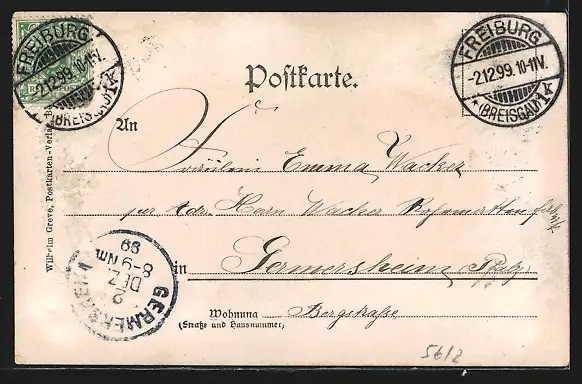 FREIBURG
2.12.99.10-11V.
(BREISGAU)
1A
FREIBURG
-2.12.99.10-11V.
* (BREISGAU) 1A
Postkarte.
An
Fräulein Emma Wacker
per Adr. Herrn Wacker
in Germersheim (Pfalz)
Wohnung Bergstraße
(Straße und Hausnummer)
GERMERSHEIM
2
DEZ.
8-9 Nm
99
Wilhelm Greve, Postkarten-Verlag
5612